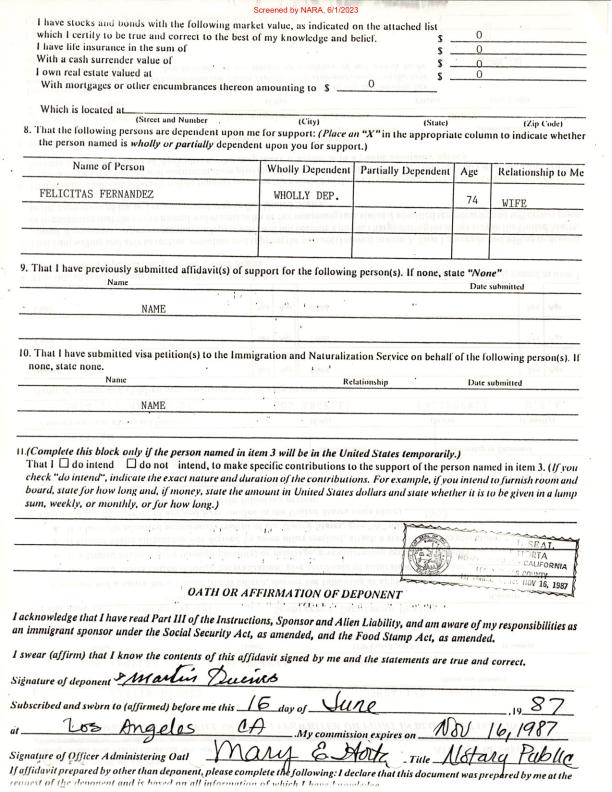 Screened by NARA, 6/1/2023
I have stocks and bonds with the following market value, as indicated on the attached list
which I certify to be true and correct to the best of my knowledge and belief. $ 0
I have life insurance in the sum of $ 0
With a cash surrender value of $ 0
I own real estate valued at $ 0
With mortgages or other encumbrances thereon amounting to $ 0
Which is located at
(Street and Number (City) (State) (Zip Code)
8. That the following persons are dependent upon me for support: (Place an "X" in the appropriate column to indicate whether
the person named is wholly or partially dependent upon you for support.)
Name of Person Wholly Dependent Partially Dependent Age Relationship to Me
FELICITAS FERNANDEZ WHOLLY DEP. 74 WIFE
9. That I have previously submitted affidavit(s) of support for the following person(s). If none, state "None"
Name Date submitted
NAME
10. That I have submitted visa petition(s) to the Immigration and Naturalization Service on behalf of the following person(s). If
none, state none.
Name Relationship Date submitted
NAME
11.(Complete this block only if the person named in item 3 will be in the United States temporarily.)
That I ☐ do intend ☐ do not intend, to make specific contributions to the support of the person named in item 3. (If you
check "do intend", indicate the exact nature and duration of the contributions. For example, if you intend to furnish room and
board, state for how long and, if money, state the amount in United States dollars and state whether it is to be given in a lump
sum, weekly, or monthly, or for how long.)
SEAL
CALIFORNIA
COUNTY
NOV 16, 1987
OATH OR AFFIRMATION OF DEPONENT
I acknowledge that I have read Part III of the Instructions, Sponsor and Alien Liability, and am aware of my responsibilities as
an immigrant sponsor under the Social Security Act, as amended, and the Food Stamp Act, as amended.
I swear (affirm) that I know the contents of this affidavit signed by me and the statements are true and correct.
Signature of deponent Martin
Subscribed and sworn to (affirmed) before me this 16 day of June ,19 87
at Los Angeles CA .My commission expires on NOV 16, 1987
Signature of Officer Administering Oatl Mary E Horta . Title Notary Public
If affidavit prepared by other than deponent, please complete the following: I declare that this document was prepared by me at the
request of the deponent and is based on all information of which I have knowledge.